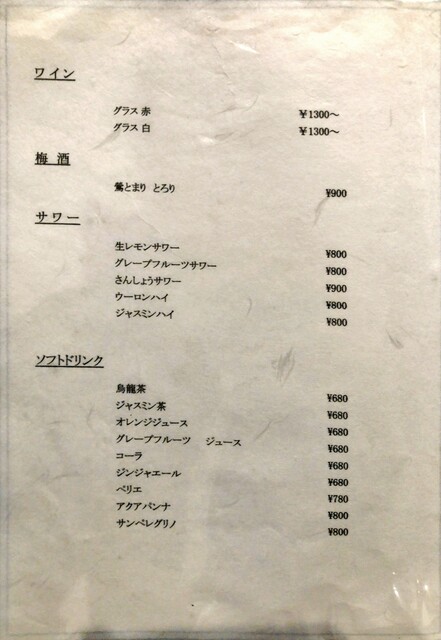 ワイン
グラス 赤 ¥1300～
グラス 白 ¥1300～
梅 酒
鶯とまり とろり ¥900
サワー
生レモンサワー ¥800
グレープフルーツサワー ¥800
さんしょうサワー ¥900
ウーロンハイ ¥800
ジャスミンハイ ¥800
ソフトドリンク
烏龍茶 ¥680
ジャスミン茶 ¥680
オレンジジュース ¥680
グレープフルーツ ジュース ¥680
コーラ ¥680
ジンジャエール ¥680
ペリエ ¥780
アクアパンナ ¥800
サンペレグリノ ¥800